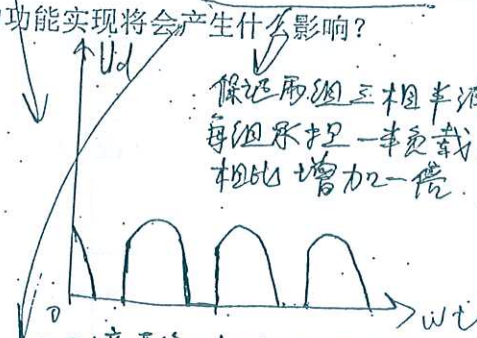 功能实现将会产生什么影响？
Ud
保证两组三相半波
每组承担一半负载
相比增加一倍
0
wt